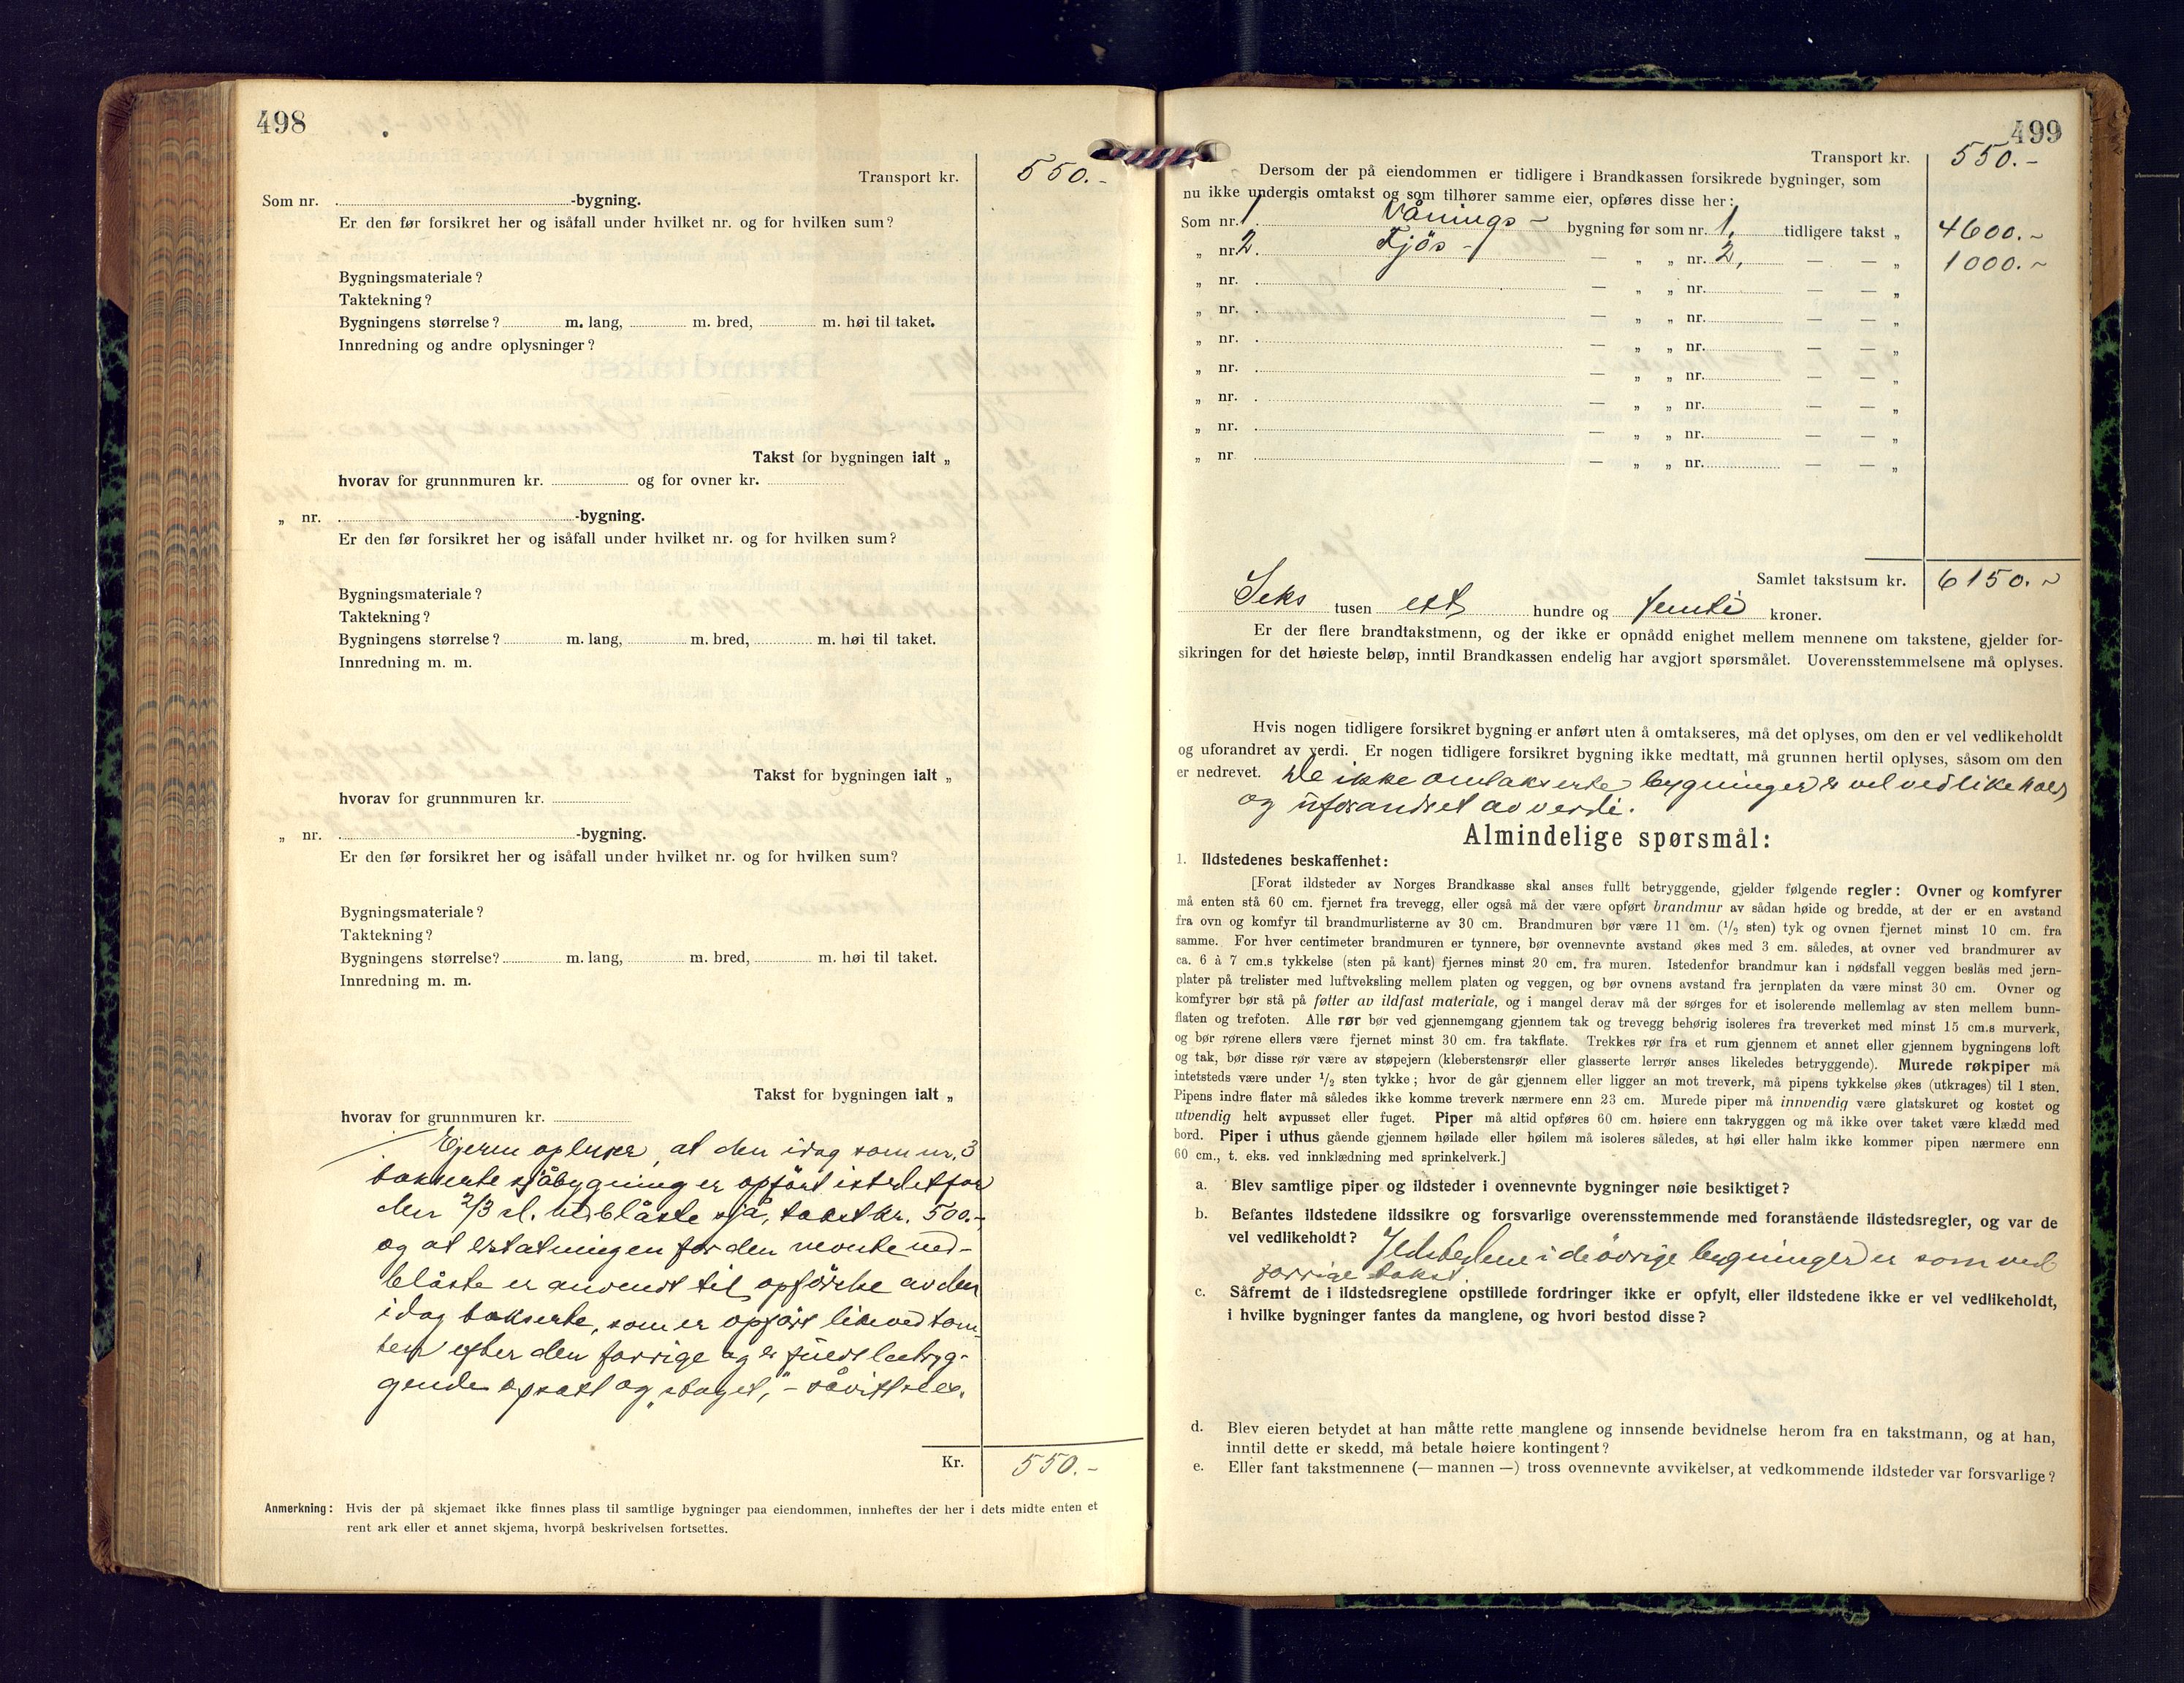 498
Transport kr. 550.-
Som nr. -bygning.
Er den før forsikret her og isåfall under hvilket nr. og for hvilken sum?
Bygningsmateriale?
Taktekning?
Bygningens størrelse? m. lang, m. bred, m. høi til taket.
Innredning og andre oplysninger?
Takst for bygningen ialt „
hvorav for grunnmuren kr. og for ovner kr.
„ nr. -bygning.
Er den før forsikret her og isåfall under hvilket nr. og for hvilken sum?
Bygningsmateriale?
Taktekning?
Bygningens størrelse? m. lang, m. bred, m. høi til taket.
Innredning m. m.
Takst for bygningen ialt „
hvorav for grunnmuren kr.
„ nr. -bygning.
Er den før forsikret her og isåfall under hvilket nr. og for hvilken sum?
Bygningsmateriale?
Taktekning?
Bygningens størrelse? m. lang, m. bred, m. høi til taket.
Innredning m. m.
Takst for bygningen ialt „
hvorav for grunnmuren kr.
Ejeren oplyser, at den idag som nr. 3
takserte sjåbygning er opført istedetfor
den 2/3 d. nedblåste sjå, takst kr. 500.-,
og at erstatningen for den nevnte ned-
blåste er anvendt til opførelse av den
idag takserte, som er opført like ved tom-
ten efter den forrige og er fuldt betryg-
gende opsatt og „staget", -
Kr. 550.-
Anmerkning: Hvis der på skjemaet ikke finnes plass til samtlige bygninger paa eiendommen, innheftes der her i dets midte enten et
rent ark eller et annet skjema, hvorpå beskrivelsen fortsettes.
499
Transport kr. 550.-
Dersom der på eiendommen er tidligere i Brandkassen forsikrede bygninger, som
nu ikke undergis omtakst og som tilhører samme eier, opføres disse her:
Som nr. 1. Vånings- bygning før som nr. 1, tidligere takst „ 4600.-
„ nr. 2. Fjøs- — „ „ nr. 2, — — „ 1000.-
„ nr. . — „ „ nr. — — „
„ nr. . — „ „ nr. — — „
„ nr. . — „ „ nr. — — „
„ nr. . — „ „ nr. — — „
„ nr. . — „ „ nr. — — „
„ nr. . — „ „ nr. — — „
„ nr. — „ „ nr. — — „
Samlet takstsum kr. 6150.-
Seks tusen ett hundre og femti kroner.
Er der flere brandtakstmenn, og der ikke er opnådd enighet mellem mennene om takstene, gjelder for-
sikringen for det høieste beløp, inntil Brandkassen endelig har avgjort spørsmålet. Uoverensstemmelsene må oplyses.
Hvis nogen tidligere forsikret bygning er anført uten å omtakseres, må det oplyses, om den er vel vedlikeholdt
og uforandret av verdi. Er nogen tidligere forsikret bygning ikke medtatt, må grunnen hertil oplyses, såsom om den
er nedrevet. De ikke omtakserte bygninger er vel vedlikehold
og uforandret av verdi.
Almindelige spørsmål:
1. Ildstedenes beskaffenhet:
[Forat ildsteder av Norges Brandkasse skal anses fullt betryggende, gjelder følgende regler: Ovner og komfyrer
må enten stå 60 cm. fjernet fra trevegg, eller også må der være opført brandmur av sådan høide og bredde, at der er en avstand
fra ovn og komfyr til brandmurlisterne av 30 cm. Brandmuren bør være 11 cm. (1/2 sten) tyk og ovnen fjernet minst 10 cm. fra
samme. For hver centimeter brandmuren er tynnere, bør ovennevnte avstand økes med 3 cm. således, at ovner ved brandmurer av
ca. 6 à 7 cm.s tykkelse (sten på kant) fjernes minst 20 cm. fra muren. Istedenfor brandmur kan i nødsfall veggen beslås med jern-
plater på trelister med luftveksling mellem platen og veggen, og bør ovnens avstand fra jernplaten da være minst 30 cm. Ovner og
komfyrer bør stå på føtter av ildfast materiale, og i mangel derav må der sørges for et isolerende mellemlag av sten mellem bunn-
flaten og trefoten. Alle rør bør ved gjennemgang gjennem tak og trevegg behørig isoleres fra treverket med minst 15 cm.s murverk,
og bør rørene ellers være fjernet minst 30 cm. fra takflate. Trekkes rør fra et rum gjennem et annet eller gjennem bygningens loft
og tak, bør disse rør være av støpejern (kleberstensrør eller glasserte lerrør anses likeledes betryggende). Murede røkpiper må
intetsteds være under 1/2 sten tykke; hvor de går gjennem eller ligger an mot treverk, må pipens tykkelse økes (utkrages) til 1 sten.
Pipens indre flater må således ikke komme treverk nærmere enn 23 cm. Murede piper må innvendig være glatskuret og kostet og
utvendig helt avpusset eller fuget. Piper må altid opføres 60 cm. høiere enn takryggen og må ikke over taket være klædd med
bord. Piper i uthus gående gjennem høilade eller høilem må isoleres således, at høi eller halm ikke kommer pipen nærmere enn
60 cm., t. eks. ved innklædning med sprinkelverk.]
a. Blev samtlige piper og ildsteder i ovennevnte bygninger nøie besiktiget?
b. Befantes ildstedene ildssikre og forsvarlige overensstemmende med foranstående ildstedsregler, og var de
vel vedlikeholdt? Ildstedene i de øvrige bygninger er som ved
forrige takst.
c. Såfremt de i ildstedsreglene opstillede fordringer ikke er opfylt, eller ildstedene ikke er vel vedlikeholdt,
i hvilke bygninger fantes da manglene, og hvori bestod disse?
d. Blev eieren betydet at han måtte rette manglene og innsende bevidnelse herom fra en takstmann, og at han,
inntil dette er skedd, må betale høiere kontingent?
e. Eller fant takstmennene (— mannen —) tross ovennevnte avvikelser, at vedkommende ildsteder var forsvarlige?